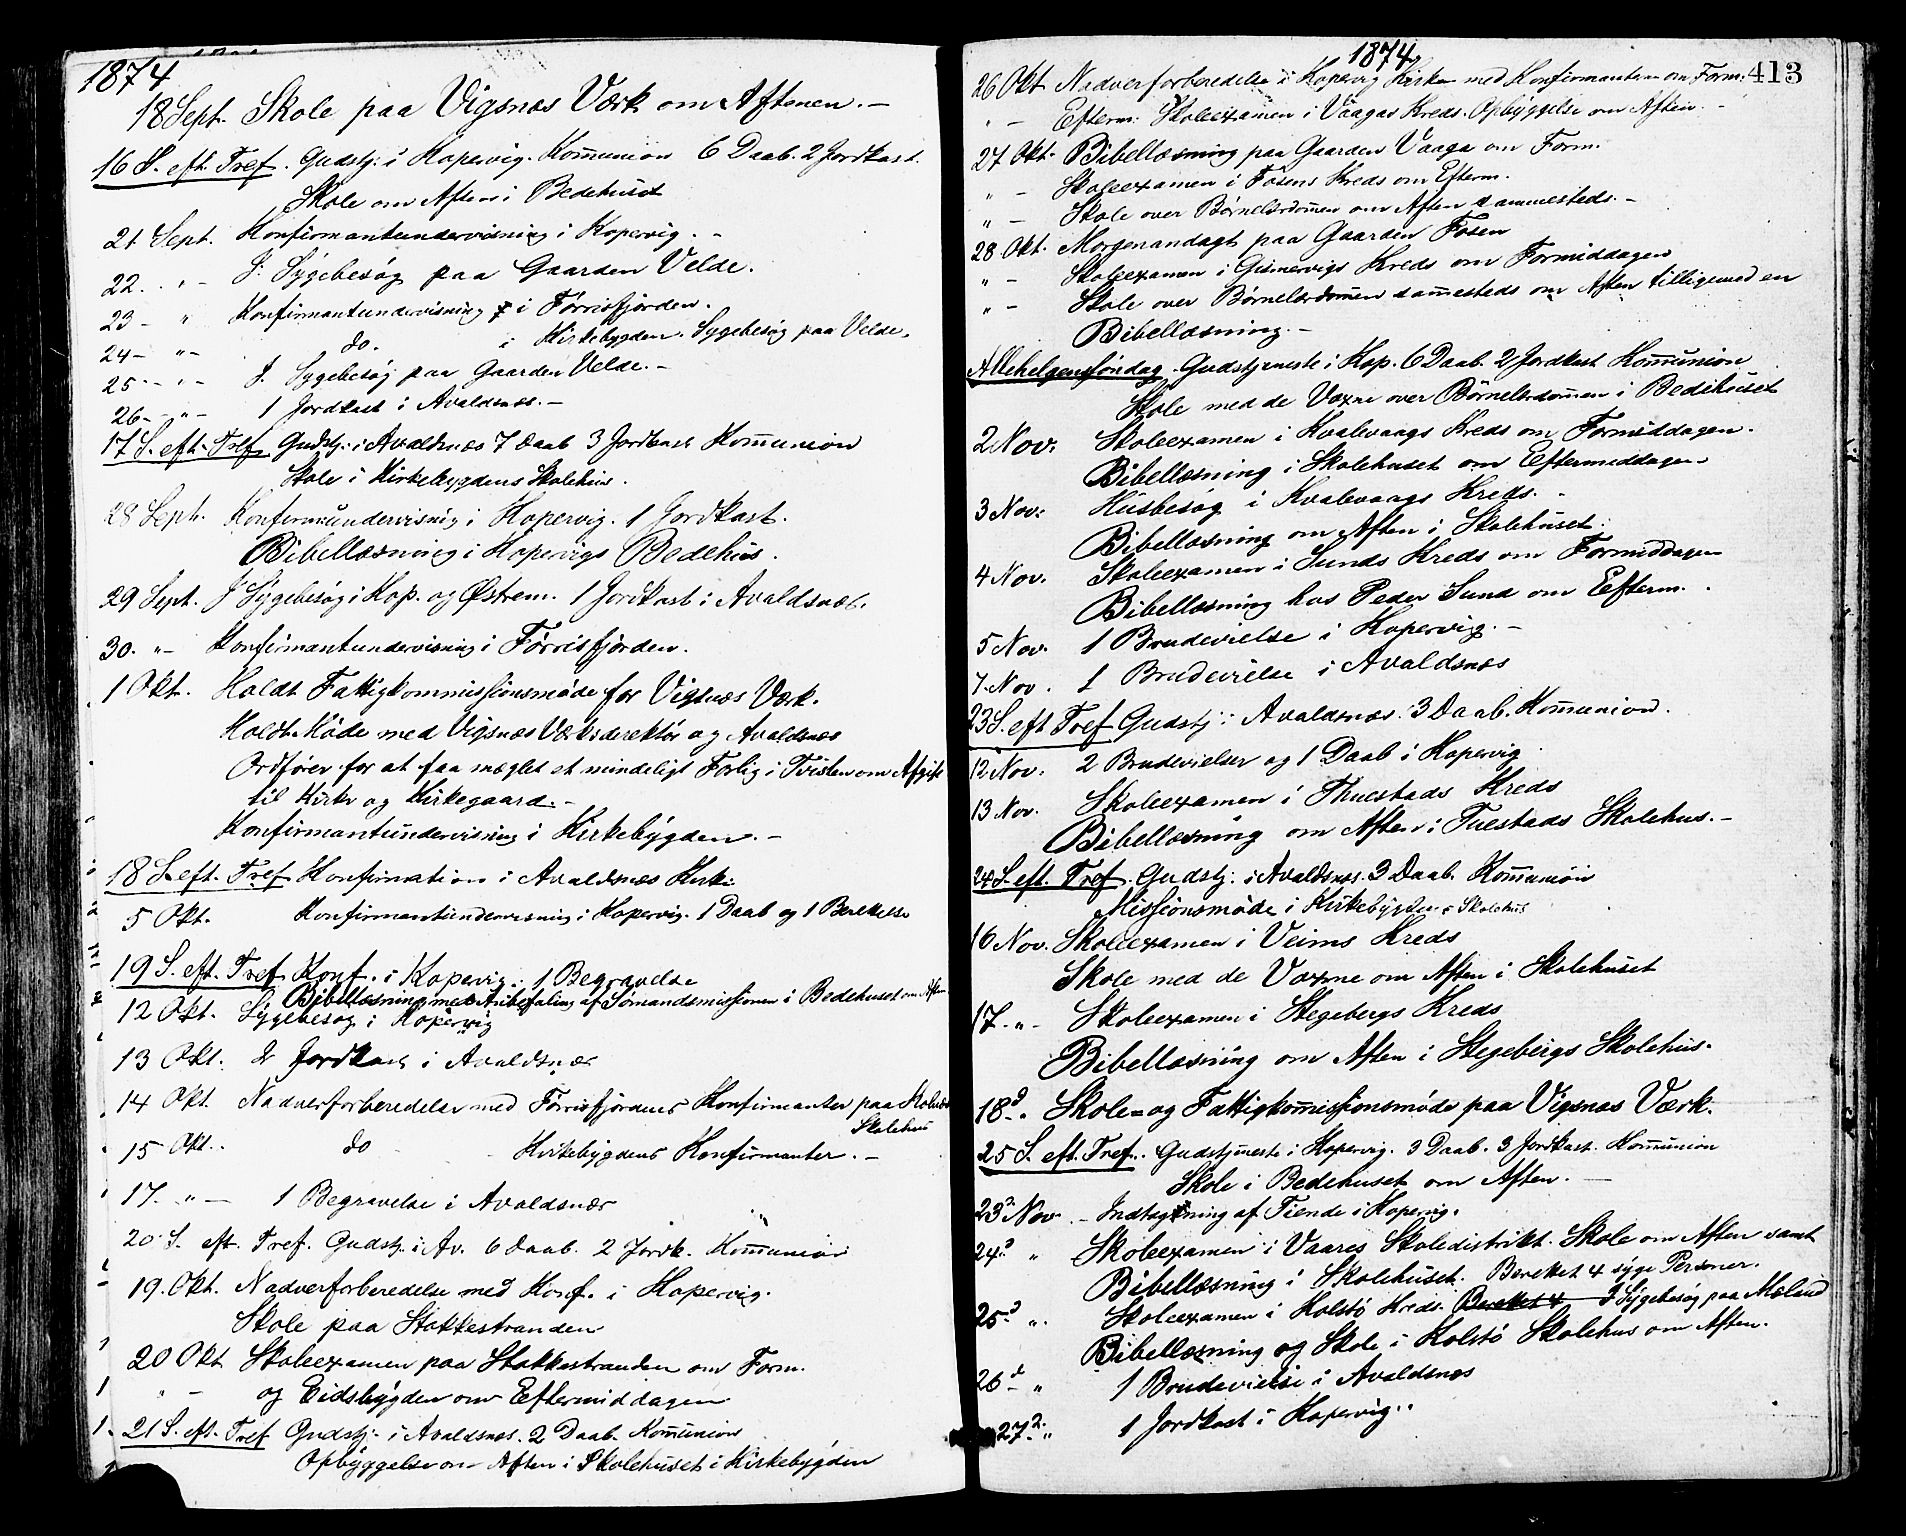 1874
18 Sept. Skole paa Vigsnæs Værk om Aftenen. –
16 S. eft. Tref. Gudstj. i Kopervig. Kommunion 6 Daab. 2 Jordkast.
Skole om Aften i Bedehuset
21 Sept. Konfirmantundervisning i Kopervig. –
22. " – J. Sygebesøg paa Gaarden Velde.
23 – " Konfirmantundervisning i Førrisfjorden.
24 – " – do. i Kirkebygden. Sygebesøg paa Velde.
25 – " – J. Sygebesøg paa Gaarden Velde. –
26 – " – 1 Jordkast i Avaldsnæs. –
17 S. eft. Tref. Gudstj. i Avaldsnæs 7 Daab 3 Jordkast Kommunion
Skole i Kirkebygdens Skolehus.
28 Sept. Konfirmundervisnig i Kopervig. 1 Jordkast.
Bibellæsning i Kopervigs Bedehus.
29 Sept. J Sygebesøg i Kop. og Østrem. 1 Jordkast i Avaldsnæs.
30. " – Konfirmantundervisning i Førrisfjorden.
1 Okt. Holdt Fattigkommissionsmøde for Vigsnæs Værk.
Holdt Møde med Vigsnæs Værksderektør og Avaldsnæs
Ordfører for at faa mæglet et mindeligt Forlig i Tvisten om Afgift
til Kirke og Kirkegaard. –
Konfirmantundervisning i Kirkebygden. –
18 S. eft. Tref Konfirmation i Avaldsnæs Kirke
5 Okt. Konfirmantundervisning i Kopervig. 1 Daab og 1 Berettelse
19 S. eft. Tref Konf. i Kopervig. 1 Begravelse
Bibellæsning med Anbefaling af Sømandsmissionen i Bedehuset om Aften
12 Okt. Sygebesøg i Kopervig
13 Okt. 2 Jordkast i Avaldsnæs
14 Okt. Nadverforberedelse med Førrisfjordens Konfirmanter paa
Skolehus
15 Okt. do Kirkebygdens Konfirmanter. –
17. " – 1 Begravelse i Avaldsnæs
20 S. eft. Tref. Gudstj. i Av. 6 Daab. 2 Jordk. Kommunion
19. Okt. Nadverforberedelse med Konf. i Kopervig.
Skole paa Stokkestranden
20 Okt Skoleexamen paa Stokkestranden om Form.
" – og Eidsbygden om Eftermiddagen
21 S. eft. Tref Gudstj. i Avaldsnæs. 2 Daab. Kommunion
Opbyggelse om Aften i Skolehuset i Kirkebygden
1874
413
26 Okt Nadverforberedelse i Kopervig Kirke med Konfirmanterne om Form.
" – Efterm. Skoleexamen i Vaagas Kreds. Opbyggelse om Aften. –
27 Okt. Bibellæsning paa Gaarden Vaaga om Form.
" – Skoleexamen i Fosens Kreds om Efterm.
" – Skole over Børnelærdommen om Aften sammesteds. –
28 Okt. Morgenandagt paa Gaarden Fosen
" – Skoleexamen i Gismervigs Kreds om Formiddagen
" – Skole over Børnelærdommen sammesteds om Aften tilligemed en
Bibellæsning. –
Allehelgenssøndag. Gudstjeneste i Kop. 6 Daab. 2 Jordkast Kommunion
Skole med de Voxne over Børnelærdommen i Bedehuset
2 Nov. Skoleexamen i Kvalevaags Kreds om Formiddagen.
Bibellæsning i Skolehuset om Eftermiddagen
3 Nov: Husbesøg i Kvalevaags Kreds. –
Bibellæsning om Aften i Skolehuset.
4 Nov. Skoleexamen i Sunds Kreds om Formiddagen
Bibellæsning hos Peder Sund om Efterm.
5 Nov. 1 Brudevielse i Kopervig. –
7. Nov. 1 Brudevielse i Avaldsnæs
23 S. eft Tref Gudstj. i Avaldsnæs. 3 Daab. Kommunion.
12 Nov. 2 Brudevielser og 1 Daab i Kopervig
13 Nov. Skoleexamen i Thuestads Kreds
Bibellæsning om Aften i Tuestads Skolehus. –
24 S. eft. Tref. Gudstj. i Avaldsnæs. 3 Daab. Kommunion
Missionsmøde i Kirkebygdens Skolehus
16 Nov. Skoleexamen i Veims Kreds
Skole med de Voxne om Aften i Skolehuset
17. " – Skoleexamen i Stegebergs Kreds
Bibellæsning om Aften i Stegebergs Skolehus.
18d. Skole- og Fattigkommissionsmøde paa Vigsnæs Værk.
25 S. eft. Tref. Gudstjeneste i Kopervig. 3 Daab. 3 Jordkast. Kommunion
Skole i Bedehuset om Aften. –
23d Nov. – Indtagning af Tiende i Kopervig.
24d " Skoleexamen i Vaares Skoledistrikt. Skole om Aften samt
Bibellæsning i Skolehuset. Berettet 4 syge Personer.
25d " Skoleexamen i Kolstø Kreds. Berettet 4 J Sygebesøg paa Mæland
Bibellæsning og Skole i Kolstø Skolehus om Aften.
26d " 1 Brudevielse i Avaldsnæs
27d. " 1 Jordkast i Kopervig.